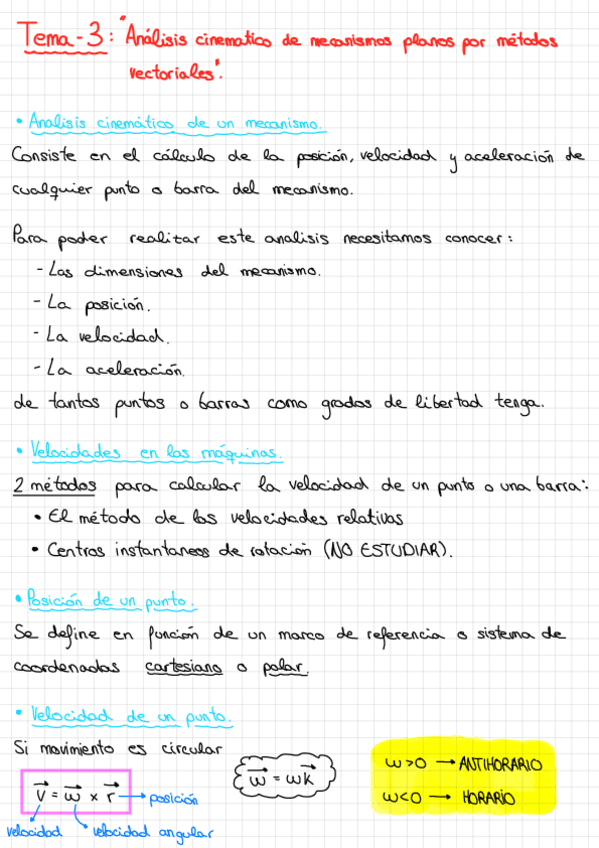 Tema-3: "Análisis cinematico de mecanismos planos por métodos
vectoriales".
• Analisis cinemático de un mecanismo.
Consiste en el cálculo de la posición, velocidad y aceleración de
cualquier punto o barra del mecanismo.
Para poder realizar este analisis necesitamos conocer:
- Las dimensiones del mecanismo.
- La posición.
- La velocidad.
- La aceleración.
de tantos puntos o barras como grados de libertad tenga.
• Velocidades en las máquinas.
2 métodos para calcular la velocidad de un punto o una barra:
• El método de las velocidades relativas
• Centros instantaneos de rotación (NO ESTUDIAR).
• Posición de un punto.
Se define en función de un marco de referencia o sistema de
coordenadas cartesiano o polar.
• Velocidad de un punto.
Si movimiento es circular
v⃗ = ω⃗ x r⃗ → posición
velocidad
velocidad angular
ω⃗ = ωk⃗
ω>0 → ANTIHORARIO
ω<0 → HORARIO